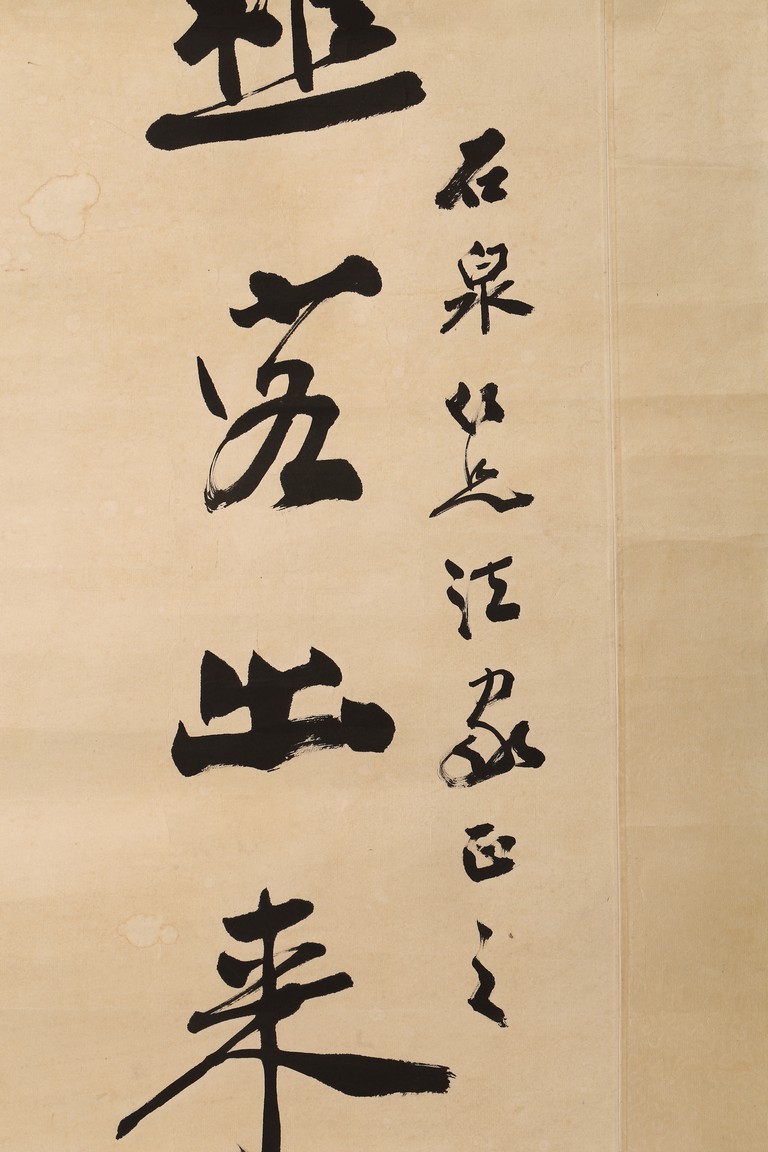 石泉仁兄法家正之
落出来